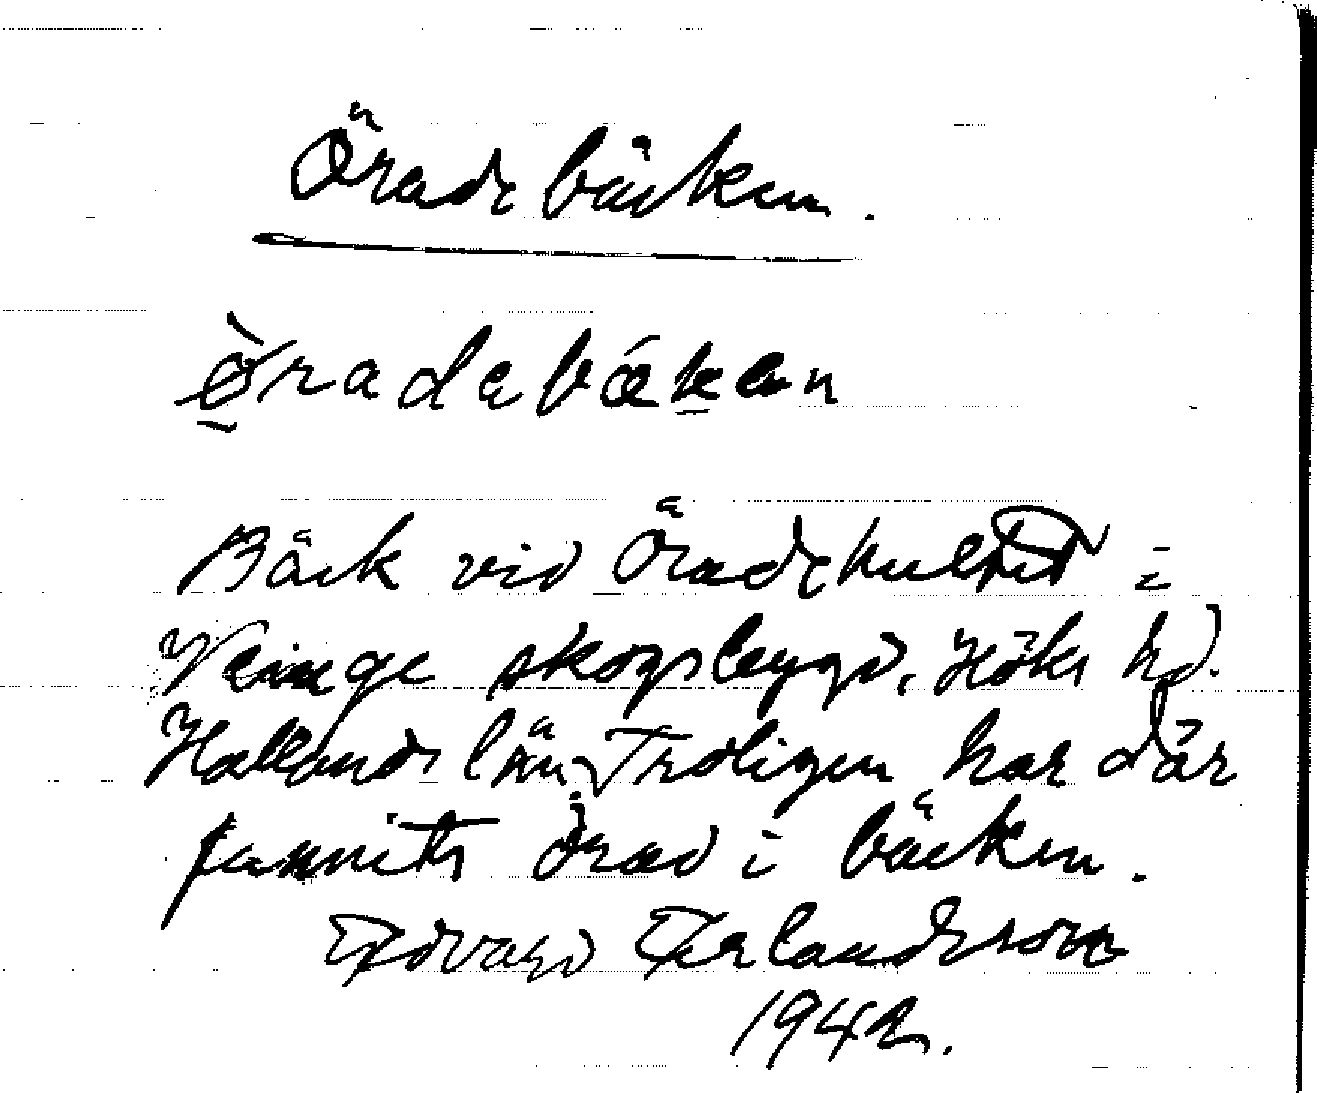 Öradebäcken.
ø̀radebǽken
Bäck vid Öradekullen i
Veinge skogsbygd, Höks hd.
Hallands län. Troligen har där
funnits örad i bäcken.
Edvard Erlandsson
1942.